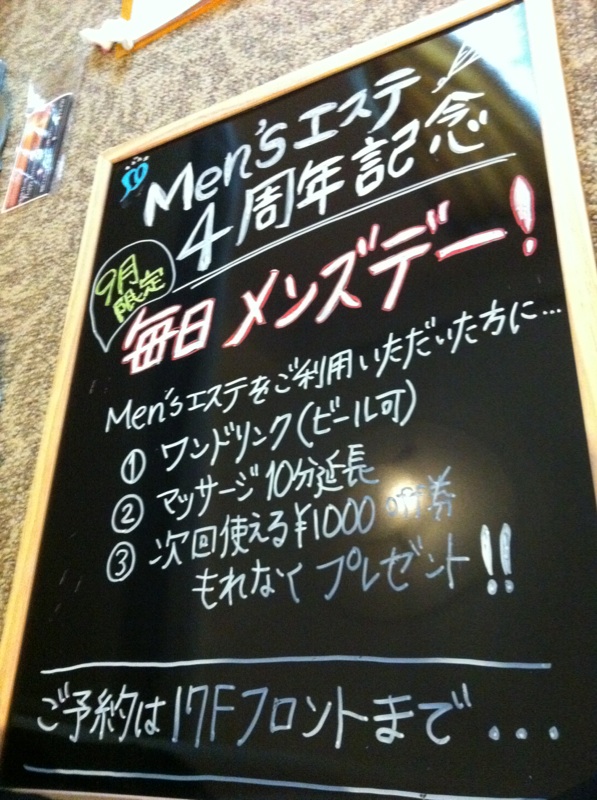 Men'sエステ
4周年記念
9月
限定
毎日 メンズデー!
Men'sエステをご利用いただいた方に...
① ワンドリンク(ビール可)
② マッサージ10分延長
③ 次回使える¥1000 券
もれなく プレゼント!!
ご予約は17Fフロントまで...